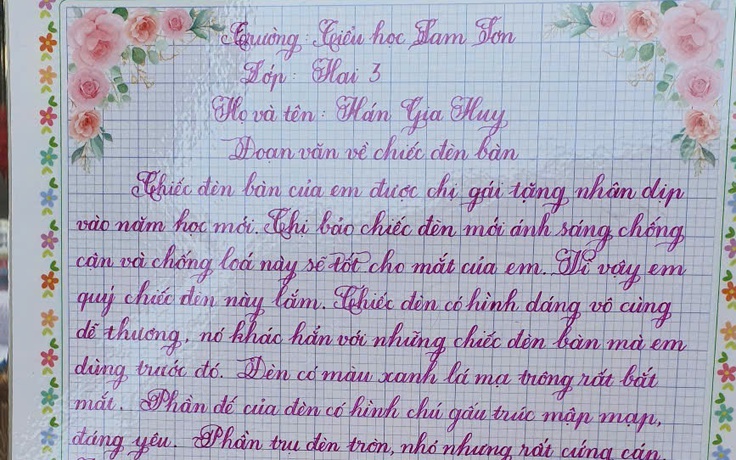 Trường: Tiểu học Lam Sơn
Lớp: Hai 3
Họ và tên: Hán Gia Huy
Đoạn văn về chiếc đèn bàn
Chiếc đèn bàn của em được chị gái tặng nhân dịp
vào năm học mới. Chị bảo chiếc đèn mới ánh sáng chống
cận và chống loá này sẽ tốt cho mắt của em. Vì vậy em
quý chiếc đèn này lắm. Chiếc đèn có hình dáng vô cùng
dễ thương, nó khác hẳn với những chiếc đèn bàn mà em
dùng trước đó. Đèn có màu xanh lá mạ trông rất bắt
mắt. Phần đế của đèn có hình chú gấu trúc mập mạp,
đáng yêu. Phần trụ đèn tròn, nhỏ nhưng rất cứng cáp.